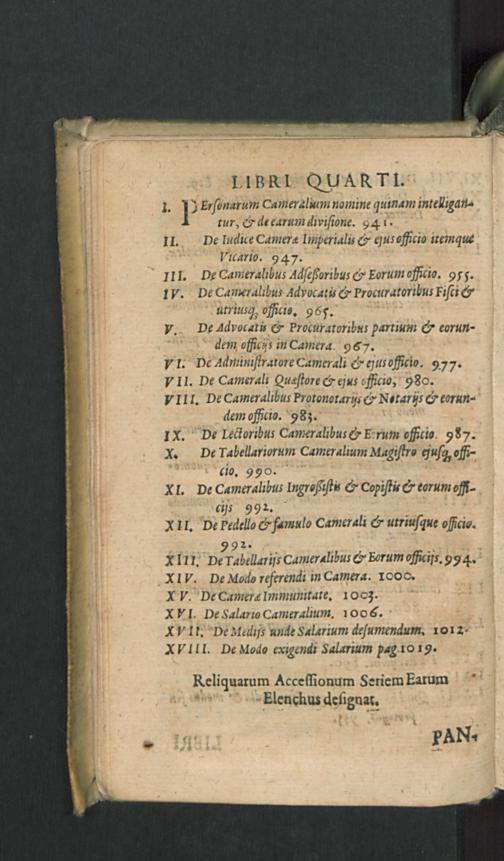 LIBRI QUARTI.
I. PErſonarum Cameralium nomine quinam intelligan-
tur, & de earum diviſione. 941.
II. De Iudice Cameræ Imperialis & ejus officio itemque
Vicario. 947.
III. De Cameralibus Adſeßoribus & Eorum officio. 955.
IV. De Cameralibus Advocatis & Procuratoribus Fiſci &
utriusq; officio. 965.
V. De Advocatis & Procuratoribus partium & eorun-
dem officijs in Camera. 967.
VI. De Adminiſtratore Camerali & ejus officio. 977.
VII. De Camerali Quæſtore & ejus officio, 980.
VIII. De Cameralibus Protonotarijs & Notarijs & eorun-
dem officio. 983.
IX. De Lectoribus Cameralibus & Eorum officio. 987.
X. De Tabellariorum Cameralium Magiſtro ejuſq; offi-
cio. 990.
XI. De Cameralibus Ingroßiſtis & Copiſtis & eorum offi-
cijs 992.
XII. De Pedello & famulo Camerali & utriuſque officio.
992.
XIII. De Tabellarijs Cameralibus & Eorum officijs. 994.
XIV. De Modo referendi in Camera. 1000.
XV. De Cameræ Immunitate. 1003.
XVI. De Salario Cameralium. 1006.
XVII. De Medijs unde Salarium deſumendum. 1012.
XVIII. De Modo exigendi Salarium pag. 1019.
Reliquarum Acceſſionum Seriem Earum
Elenchus deſignat.
PAN-